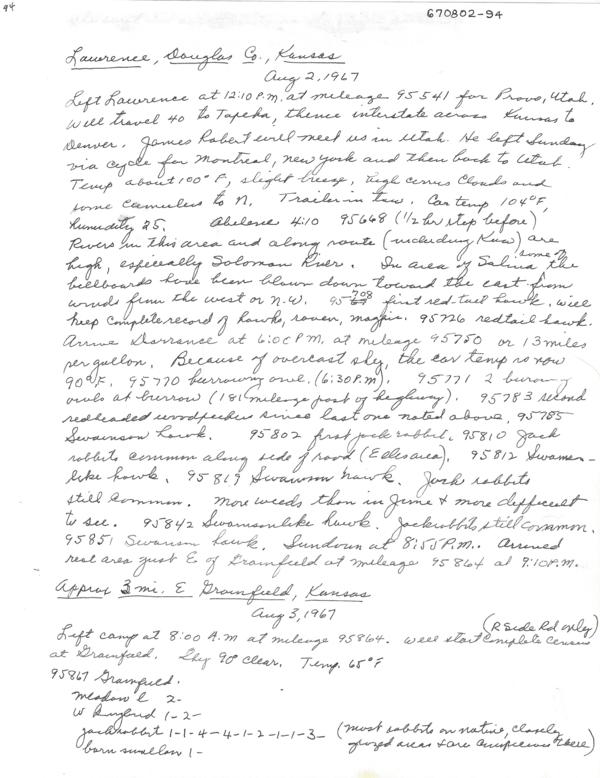 94
670802-94
Lawrence, Douglas Co., Kansas
Aug 2, 1967
Left Lawrence at 12:10 P.M. at mileage 95541 for Provo, Utah.
Will travel 40 to Topeka, thence interstate across Kansas to
Denver. James Robert will meet us in Utah. He left Sunday
via cycle for Montreal, New York and then back to Utah.
Temp about 100°F, slight breeze, high cirrus clouds and
some cumulus to N. Trailer in tow. Car temp 104°F,
humidity 25. Abilene 4:10 95668 (1/2 hr stop before)
Rivers in this area and along route (including Kaw) are
high, especially Soloman River. In area of Salina some of the
billboards have been blown down toward the east from
winds from the west or N.W. 95708 first red tail hawk. Will
keep complete record of hawks, raven, magpie. 95726 redtail hawk.
Arrive Dorrance at 6:00 P.M. at mileage 95750 or 13 miles
per gallon. Because of overcast sky, the car temp is now
90°F. 95770 burrowing owl. (6:30 P.M.). 95771 2 burowg
owls at burrow (181 mileage post of highway). 95783 second
redheaded woodpeckers since last one noted above. 95785
Swainson hawk. 95802 first jack rabbit. 95810 Jack
rabbits common along side of road (Ellis area). 95812 Swainson-
like hawk. 95819 Swainson hawk. Jack rabbits
still common. More weeds than in June & more difficult
to see. 95842 Swainsonlike hawk. Jackrabbits still common.
95851 Swainson hawk. Sundown at 8:55 P.M. Arrived
rest area just E of Grainfield at mileage 95864 at 9:10 P.M.
Approx 3 mi. E Grainfield, Kansas
Aug 3, 1967
(R Side Rd only)
Left camp at 8:00 A.M at mileage 95864. Will start complete census
at Grainfield. Sky 90% clear. Temp. 65°F
95867 Grainfield.
meadow l 2-
W Kingbird 1-2-
jackrabbit 1-1-4-4-1-2-1-1-3- (most rabbits on native, closely
grazed areas & are conspicuous there)
barn swallow 1-